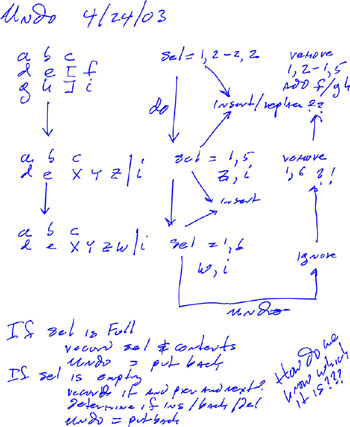 Undo 4/24/03
a b c
d e [ f
g h ] i
sel = 1,2-2,2
remove
1,2-1,5
add f/gh
do
insert/replace ??
a b c
d e X Y Z | i
sel = 1,5
Z, i
remove
1,6 ?!
insert
a b c
d e X Y Z W | i
sel = 1,6
W, i
ignore
undo
If sel is Full
record sel & contents
undo = put back
If sel is empty
record it and prev and next?
determine if ins/back/del
undo = put back
How do we
know which
it is???